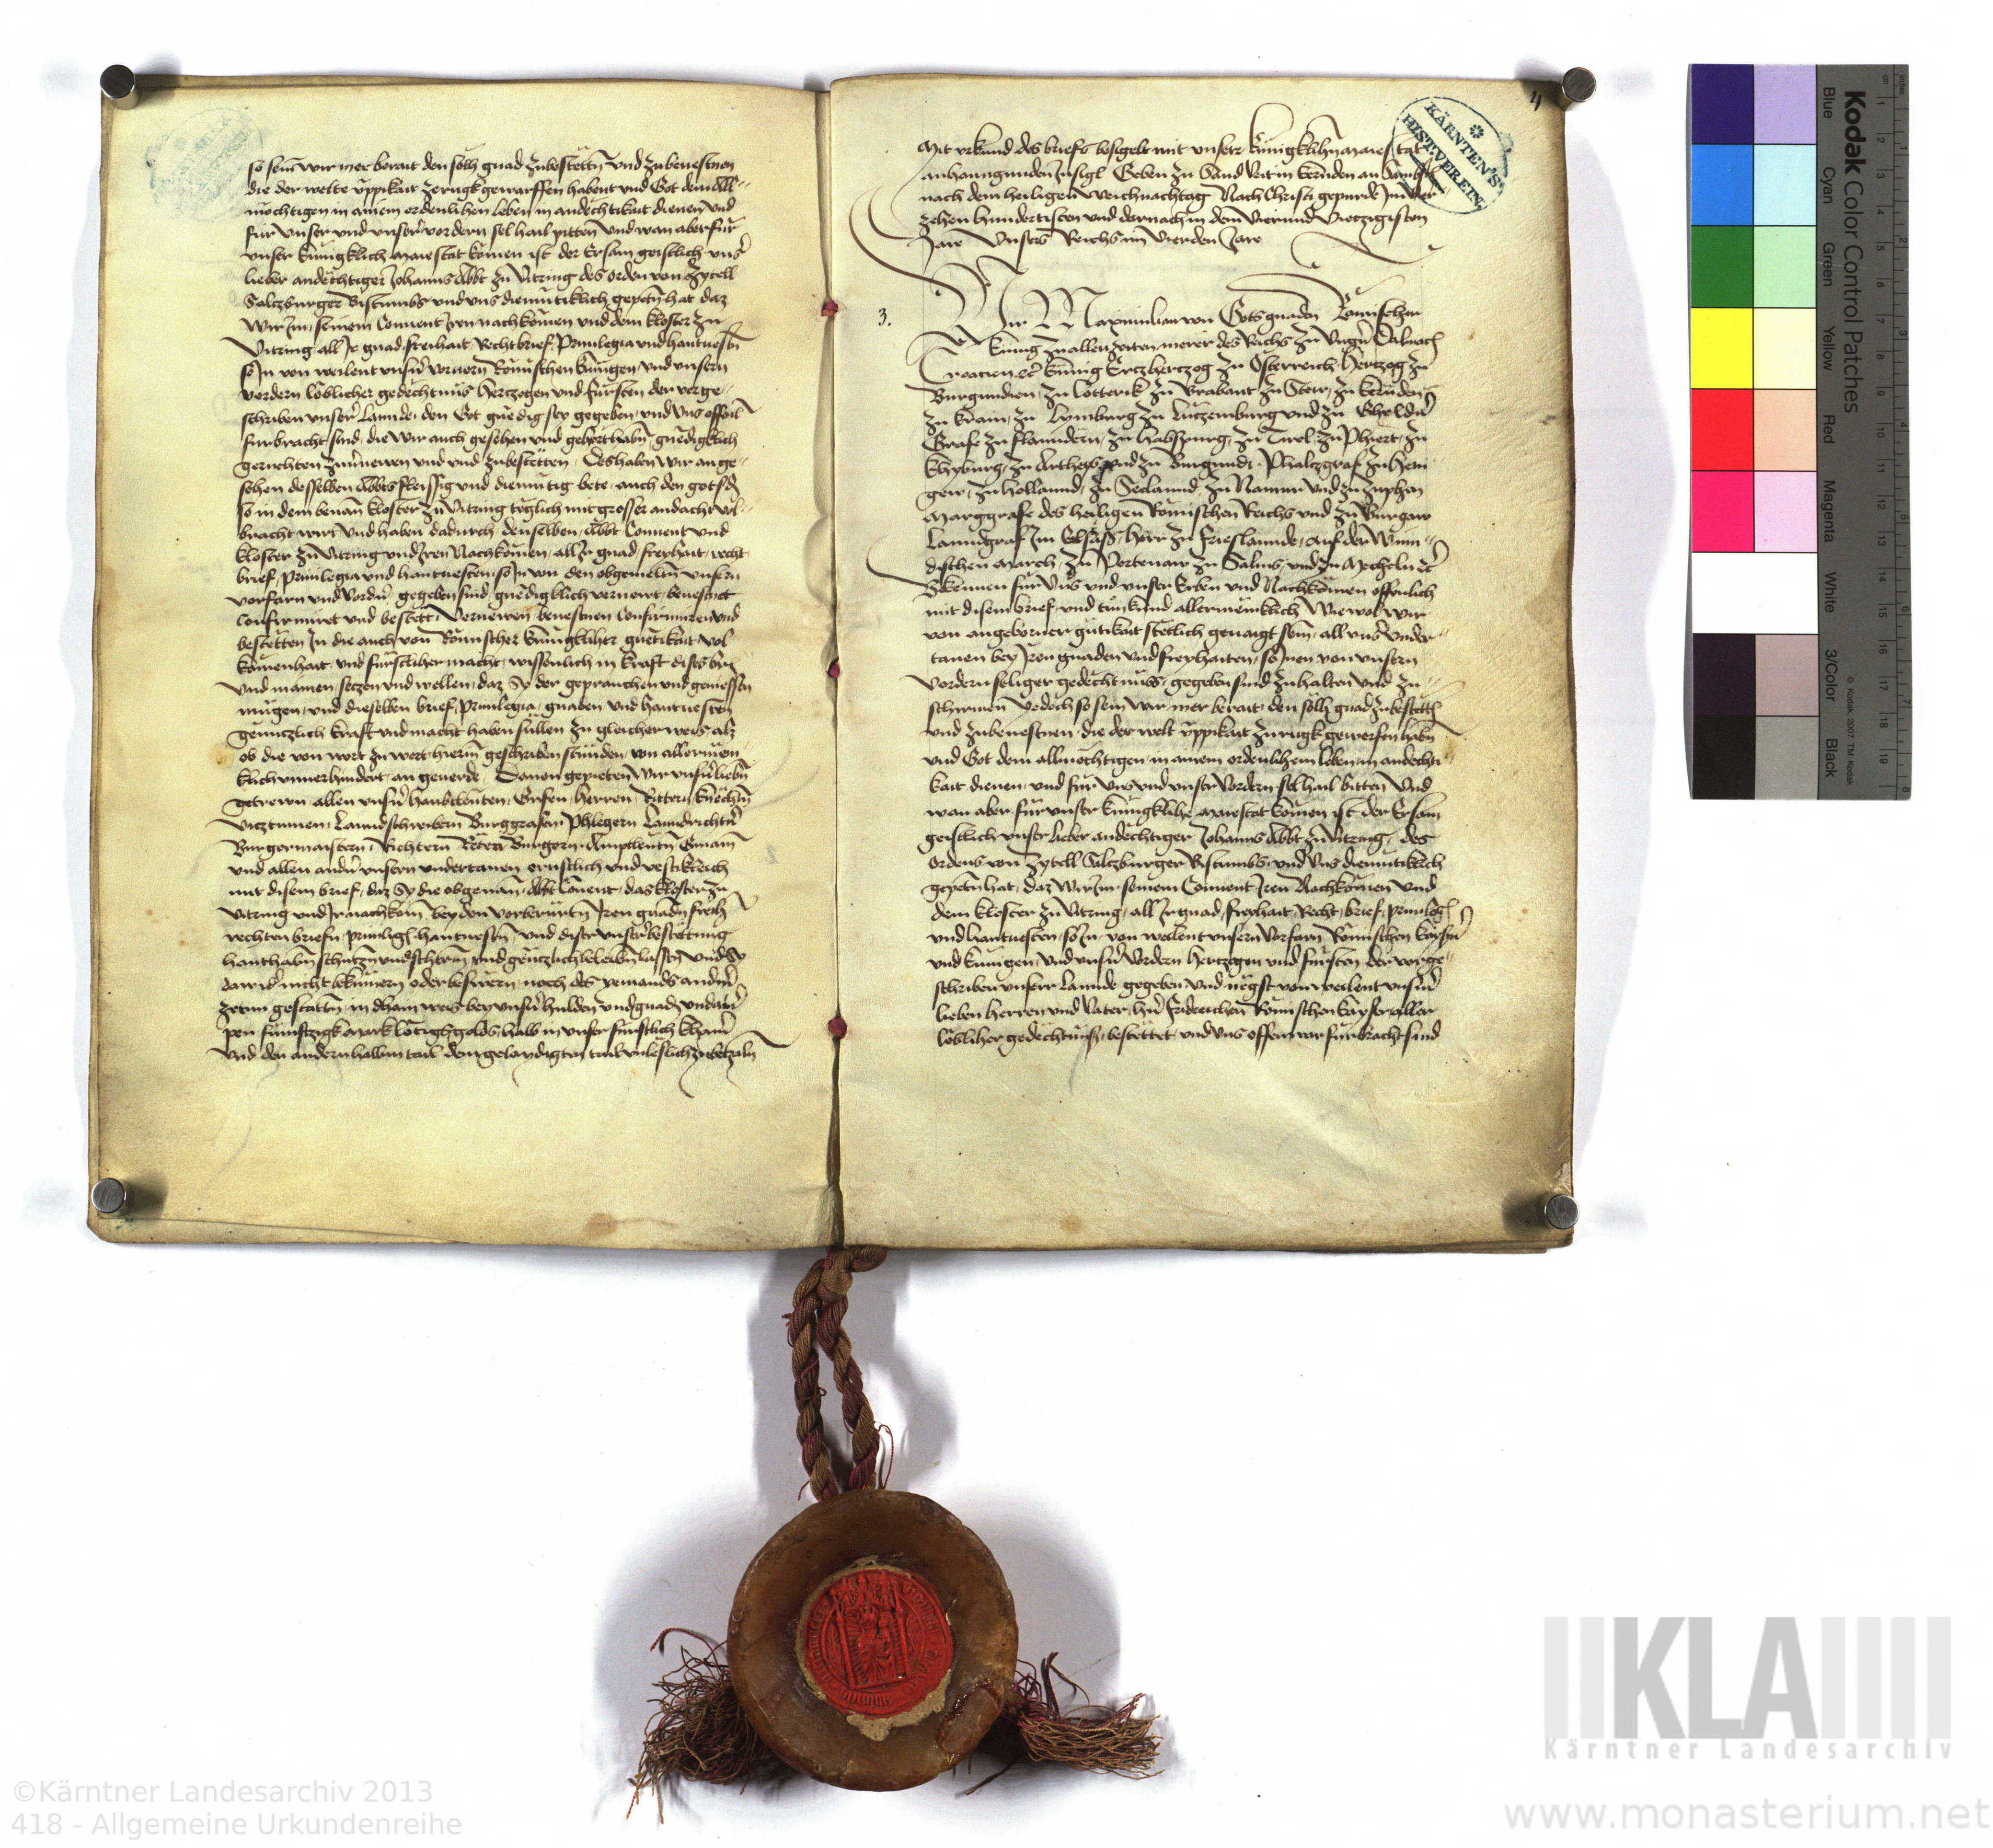 so sein wir mer berait den sölh gnad zubestettn̄ vnd zubeuestnen
die der welte üppikait zerugk geworffen habent vnd Got dem All-
mechtigen in ainem ordenlihen leben in andechtikait dienen vnd
für vnser vnd vnser vordern sel hail pitten vnd wan aber für
vnser kunigklich maiestat komen ist der Ersam geistlich vnser
lieber andechtiger Johanns Abbt zu Vitring des orden von Zytell
Saltzburger Bistumbs vnd vns diemutiklich gepetn̄ hat daz
wir Im seinem Conuent Iren nachkomen vnd dem kloster zu
Vitring all Ir gnad freihait Rechtbrief Priuilegia vnd hantuestn̄
so In von weilent vnsern voruorn Römischen kunigen vnd vnsern
vordern löblicher gedechtnus Hertzogen vnd fürsten der vorge-
schriben vnserr Lannde den Got gnedig sey gegeben vnd vns offenlich
furbracht sind die wir auch gesehen vnd gehört habn̄ gnedigklich
geruchten zuuernewen vnd zubestetten Des haben wir ange-
sehen desselben Abbts fleissig vnd diemutig bete auch den gotsd
so in dem benan̄ kloster zu Vitring teglich mit grosser andacht vol-
bracht wirt vnd haben dadurch denselben Abbt Conuent vnd
kloster zu Vitring vnd Iren Nachkomen all Ir gnad freyhait recht
brief Priuilegia vnd hantuesten so In von den obgemeltn̄ vnsern
vorfarn vnd vordern gegeben sind gnedigklich vernewt beuestnet
Confirmiret vnd bestett Vernewen beuestnen Confirmiren vnd
bestetten In die auch von Römischer kunigklicher guetikait vol
komenhait vnd fürstlicher macht wissenlich in kraft diss briefs
Vnd mainen setzen vnd wellen daz Sy der geprauchen vnd geniessen
mügen vnd dieselben brief Priuilegia gnaden vnd hantuesten
genntzlich kraft vnd macht haben süllen zu gleicher weis als
ob die von wort zu wort hierin̄ geschriben stunden von allermen-
klich vnuerhindert an geuerde Dauon gepieten wir vnsern liebn̄
getrewn allen vnsern haubtleuten Grafen Herren Rittern knechtn̄
Vitztumen Lanndschreibern Burggrafen Phlegern Lanndrichtern
Burgermaistern Richtern Reten Burgern Amptleutn̄ Gmain̄
vnd allen andern vnsern vndertanen ernstlich vnd vestiklich
mit disem brief daz Sy die obgenan̄ Abbt Conuent das kloster zu
Vitring vnd Ir nachkom̄ bey den vorberürtn̄ Iren gnadn̄ freih
rechten briefn priuilegi hantuestn̄ vnd diser vnser bestettung
hanthabn̄ schutzn̄ vnd schirm̄ vnd gentzlich beleiben lassn̄ vnd Sy
dawider nicht bekumern oder beswern noch des yemands andern̄
zetun gestattn̄ in dhain weis bey vnsern hulden vnd gnadn̄ vnd ainer
pen fünftzigk mark lötigs golds halb in vnser fürstlich kamer
vnd den andern halbm tail dem gelaidigten tail vnleslich zubetzaln
4
Mit vrkund des briefs besigelt mit vnserr kunigklihn̄ maiestat
anhanngunden Insigl Geben zu Sand Veit in kernden an Sambstag
nach dem heiligen Weichnachtag Nach Christi gepurde Im vier
zehen hundertisten vnd darnach in dem Vierund Viertzigisten
Jare Vnsers Reichs im Vierden Jare
3.
Wir Maximilian von Gots gnaden Römischer
kunig zu allen zeiten merer des Reichs zu Vngern Dalmacien
Croacien etc kunig Ertzhertzog zu Osterreich Hertzog zu
Burgundien zu Lotterik zu Brabant zu Steir zu kernden
zu krain zu Lymburg zu Lutzemburg vnd zu Gheldern
Grafe zu flanndern zu Habspurg zu Tirol zu Phiert zu
khyburg zu Arthoys vnd zu Burgundi Phaltzgraf zu Heni
gew zu Hollannd zu Seelannd zu Namur vnd zu Zuphen
Marggrafe des heiligen Römischen Reichs vnd zu Burgaw
Lanndgraf Im Elsass Herr zu Frieslannde auf der Winn-
dischen March zu Portenaw zu Salins vnd zu Mecheln etc
Bekennen für vns vnd vnser Erben vnd Nachkomen offenlich
mit disem brief vnd tun kund allermeniklich Wiewol wir
von angeborner gütikait stetlich genaigt sein all vnser vnder-
tanen bey Iren gnaden vnd freyhaiten so Inen von vnsern
vordern seliger gedechtnuss gegeben sind zuhalten vnd zu-
schirmen yedoch so sein wir mer berait den sölh gnad zubestettn
vnd zubeuestnen die der welt üppikait zurugk geworfen habn̄
vnd Got dem allmechtigen in ainem ordenlihem leben in andechti-
kait dienen vnd für vns vnd vnser Vordern sel hail bitten Vnd
wan aber für vnser kunigkliche Maiestat komen ist der Ersam
geistlich vnser lieber andechtiger Johanns Abbt zu Vitring des
ordens von Zytell Saltzburger Bistumbs vnd vns diemutiklich
gepetn̄ hat daz wir Im seinem Conuent Iren Nachkomen vnd
dem kloster zu Vitring all Ir gnad freyhait Recht brief priuilegi
vnd hantuesten so In von weilent vnsern Vorfarn Römischen kaysern
vnd kunigen vnd vnsern Vordern Hertzogen vnd fürsten der vorge-
schriben vnserr Lannde gegeben vnd negst von weilent vnserm
lieben herren vnd Vater hern̄ Fridreichen Römischen kayser aller
löblicher gedechtnuss bestettet vnd vns offenwar fürbracht sind
KÄRNTEN'S
HIST. VEREIN.
Kodak Color Control Patches
Blue Cyan Green Yellow Red Magenta White 3/Color Black
© Kodak, 2007 TM: Kodak
KLA
Kärntner Landesarchiv
©Kärntner Landesarchiv 2013
418 - Allgemeine Urkundenreihe
www.monasterium.net